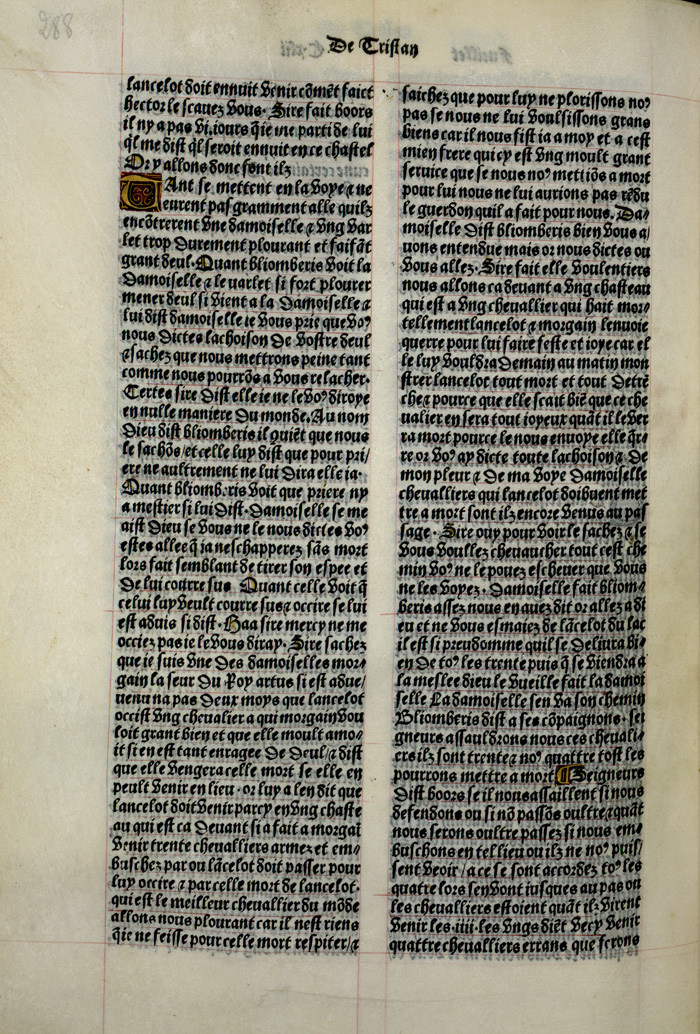 288
De Tristan
lancelot doit ennuit venir cõmẽt faict
hector le scauez vous. Sire fait boors
il ny a pas vi. iours q̃ ie me parti de lui
q̃l me dist q̃l seroit ennuit en ce chastel
Or y allons donc font ilz
Tant se mettent en la voye ⁊ ne
eurent pas gramment alle quilz
encõtrerent vne damoiselle ⁊ vng var
let trop durement plourant et faisãt
grant deul. Quant bliomberis voit la
damoiselle ⁊ le varlet si fort plourer
mener deul si vient a la damoiselle ⁊
lui dist damoiselle ie vous prie que vo⁹
nous dictes lachoison de vostre deul
⁊ sachez que nous mettrons peine tant
comme nous pourrõs a vous relacher.
Certes sire dist elle ie ne le vo⁹ diroye
en nulle maniere du monde. Au nom
dieu dist bliomberis il quiẽt que nous
le sachõs / et celle luy dist que pour pri/
ere ne aultrement ne lui dira elle ia.
Quant bliomberis voit que priere ny
a mestier si lui dist. Damoiselle se me
aist dieu se vous ne le nous dictes vo⁹
estes allee q̃ ia neschapperez sãs mort
lors fait semblant de tirer son espee et
de lui courre sus Quant celle voit q̃
celui luy veult courre sus ⁊ occire se lui
est aduis si dist. Haa sire mercy ne me
occiez pas ie le vous diray. Sire sachez
que ie suis vne des damoiselles mor/
gain la seur du Roy artus si est adue/
uenu na pas deux moys que lancelot
occist vng cheualier a qui morgain vou
loit grant bien et que elle moult amo/
it si en est tant enragee de deul / ⁊ dist
que elle vengera celle mort se elle en
peult venir en lieu. or luy a len dit que
lancelot doit venir par cy en vng chaste
au qui est ca deuant si a fait a morgaĩ
venir trente cheualliers armez et em/
buschez par ou lãcelot doit passer pour
luy occire ⁊ par celle mort de lancelot.
qui est le meilleur cheuallier du mõde
allons nous plourant car il nest riens
q̃ ie ne feisse pour celle mort respiter / ⁊
saichez que pour luy ne plorissons no⁹
pas se nous ne lui voulsissons grans
biens car il nous fist ia a moy et a cest
mien frere qui cy est vng moult grant
seruice que se nous no⁹ mettiõs a mort
pour lui nous ne lui aurions pas rẽdu
le guerdon quil a fait pour nous. Da/
moiselle dist bliomberis bien vous a/
uons entendue mais or nous dictes ou
vous allez. Sire fait elle voulentiers
nous allons ca deuant a vng chasteau
qui est a vng cheuallier qui hait mor/
tellement lancelot ⁊ morgain lenuoie
querre pour lui faire feste et ioye car el
le luy vouldra demain au matin mon
strer lancelot tout mort et tout detrẽ
che ⁊ pource que elle scait biẽ que ce che
ualier en sera tout ioyeux quãt il le ver
ra mort pource le nous enuoye elle q̃r/
re or vo⁹ ay dicte toute lachoison ⁊ de
mon pleur ⁊ de ma voye Damoiselle
cheualliers qui lancelot doibuent met
tre a mort sont ilz encore venus au pas
sage. Sire ouy pour voir le sachez ⁊ se
vous voullez cheuaucher tout cest che
min vo⁹ ne le pouez escheuer que vous
ne les voyez. Damoiselle fait bliom/
beris assez nous en auez dit or allez a di
eu et ne vous esmaiez de lãcelot du lac
il est si preudomme quil se deliura bi/
en de to⁹ les trente puis q̃ se viendra a
la meslee dieu le vueille fait la damoi
selle La damoiselle sen va son chemin
Bliomberis dist a ses cõpaignons. sei
gneurs assauldrons nous ces cheuali/
ers ilz sont trente ⁊ no⁹ quattre tost les
pourrons mettre a mort ¶ Seigneurs
dist boors se il nous assaillent si nous
defendons ou si nõ passõs oultre ⁊ quãt
nous serons oultre passez si nous em/
buschons en tel lieu ou ilz ne no⁹ puis/
sent veoir / a ce se sont accordez to⁹ les
quatre lors sen vont iusques au pas ou
les cheualliers estoient quãt ilz virent
venir les .iiii. les vngs diẽt vecy venir
quattre cheualliers errans que ferons